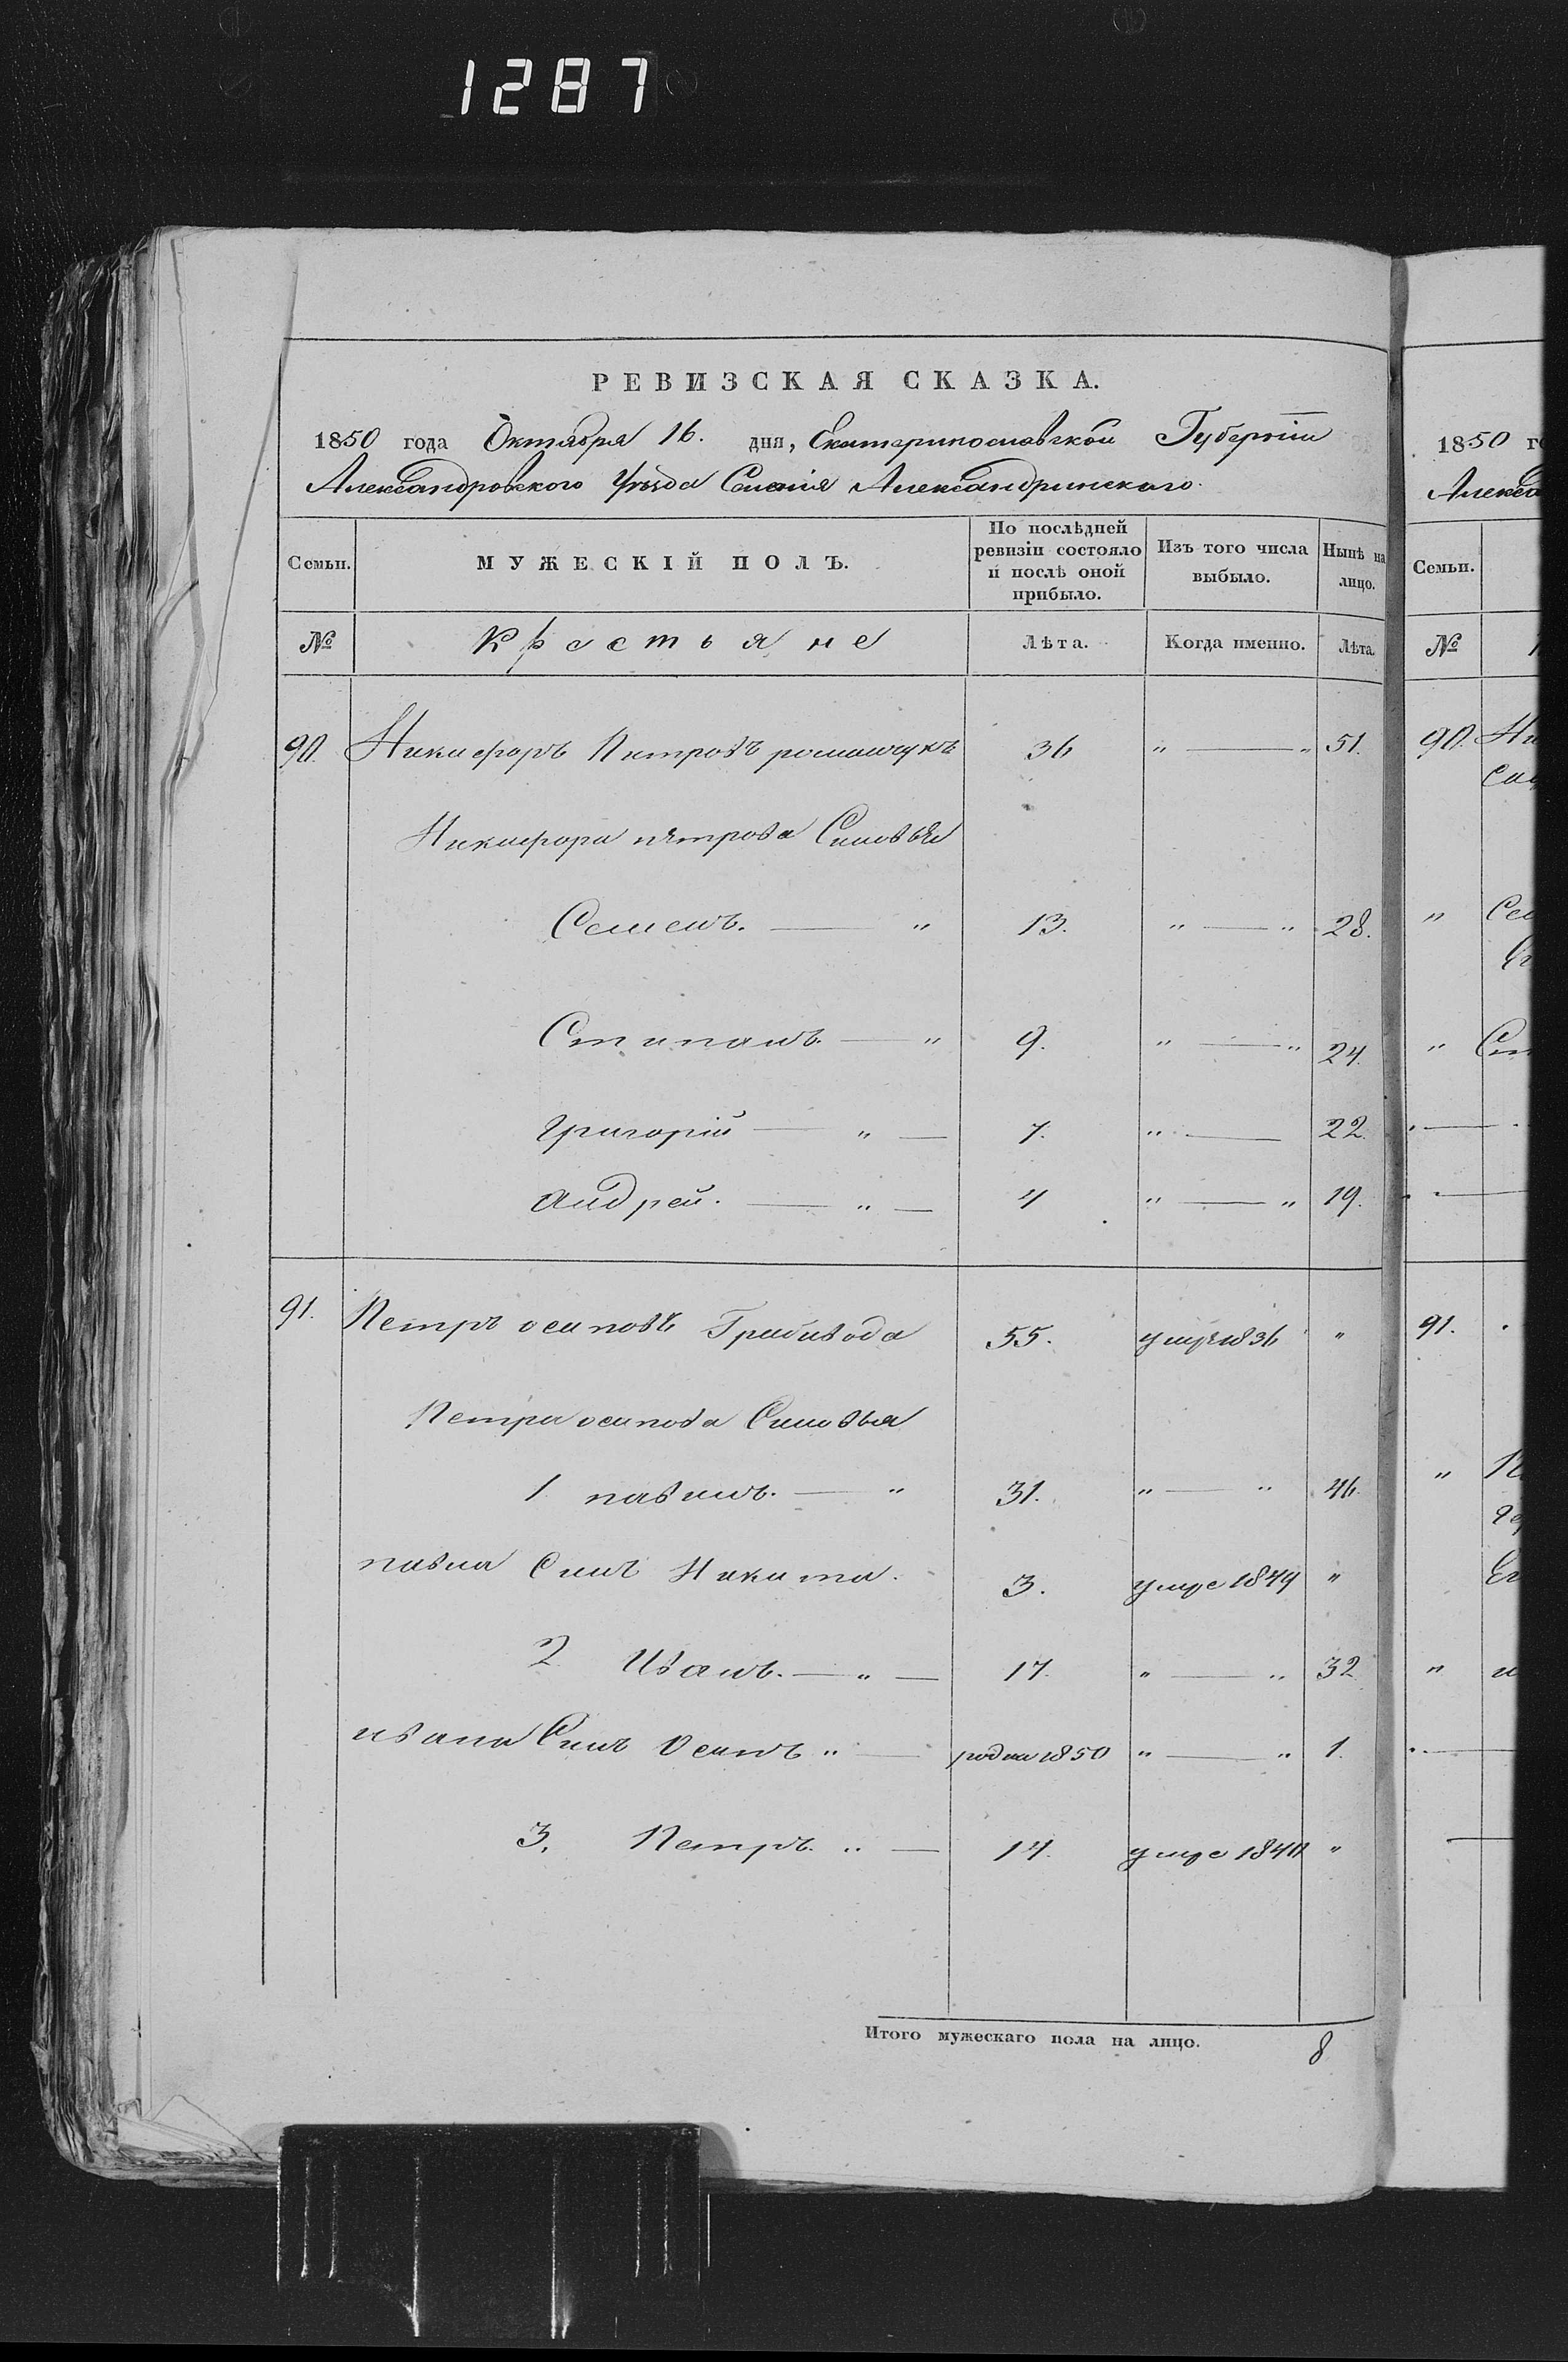 1287
РЕВИЗСКАЯ СКАЗКА.
1850 года Октября 16. дня, Екатеринославской Губерніи
Александровского Уѣзда Селенія Александринскаго.
Семьи. МУЖЕСКІЙ ПОЛЪ. По послѣдней ревизіи состояло и послѣ оной прибыло. Изъ того числа выбыло. Нынѣ на лицо.
№ Крестьяне Лѣта. Когда именно. Лѣта.
90. Никифоръ Петровъ ромащукъ 36 " — " 51.
Никифора петрова Синовья
Семенъ. — " 13. " — " 28.
Степанъ. — " 9. " — " 24.
Григорій — " — 7. " — 22.
Андрей. — " — 4 " — " 19.
91. Петръ осиповъ Грибивода 55. умре 1836 "
Петра осипова Синовья
1 павелъ. — " 31. " — " 46.
павла Синъ Никита. 3. умре 1849 "
2 Иванъ. — " — 17. " — " 32
ивана Синъ Осипъ " — родил 1850 " — " 1.
3. Петръ. " — 14. умре 1840 "
Итого мужескаго пола на лицо. 8
1850 го
Алекса
Семьи.
№
90. Ни
"
"
91.
"
"